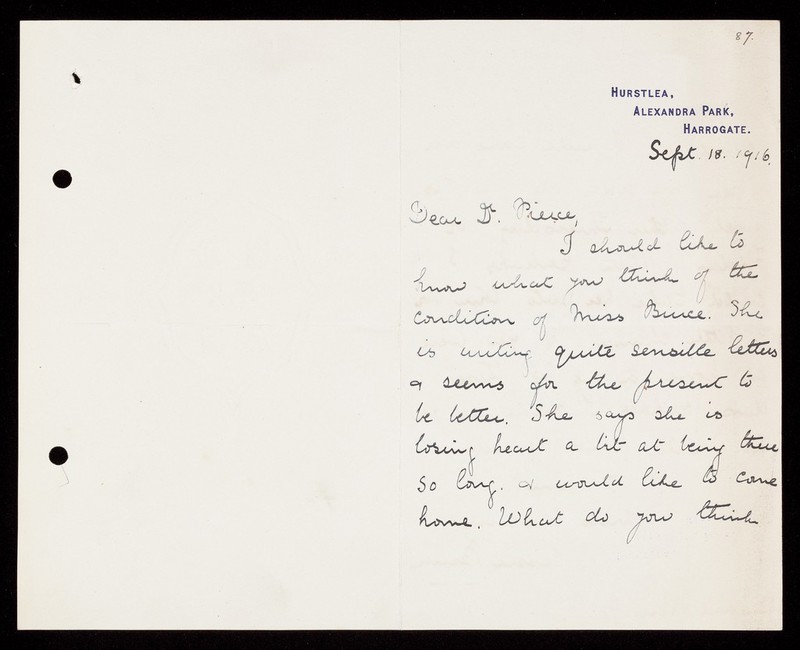 87.
HURSTLEA,
ALEXANDRA PARK,
HARROGATE.
Sept. 18. 1916.
Dear Dr. Pierce,
I should like to
know what you think of the
condition of Miss
She
is writing quite sensible letters
& seems for the present to
be better. She says she is
losing heart a bit at being there
so long. & would like to come
home. What do you think